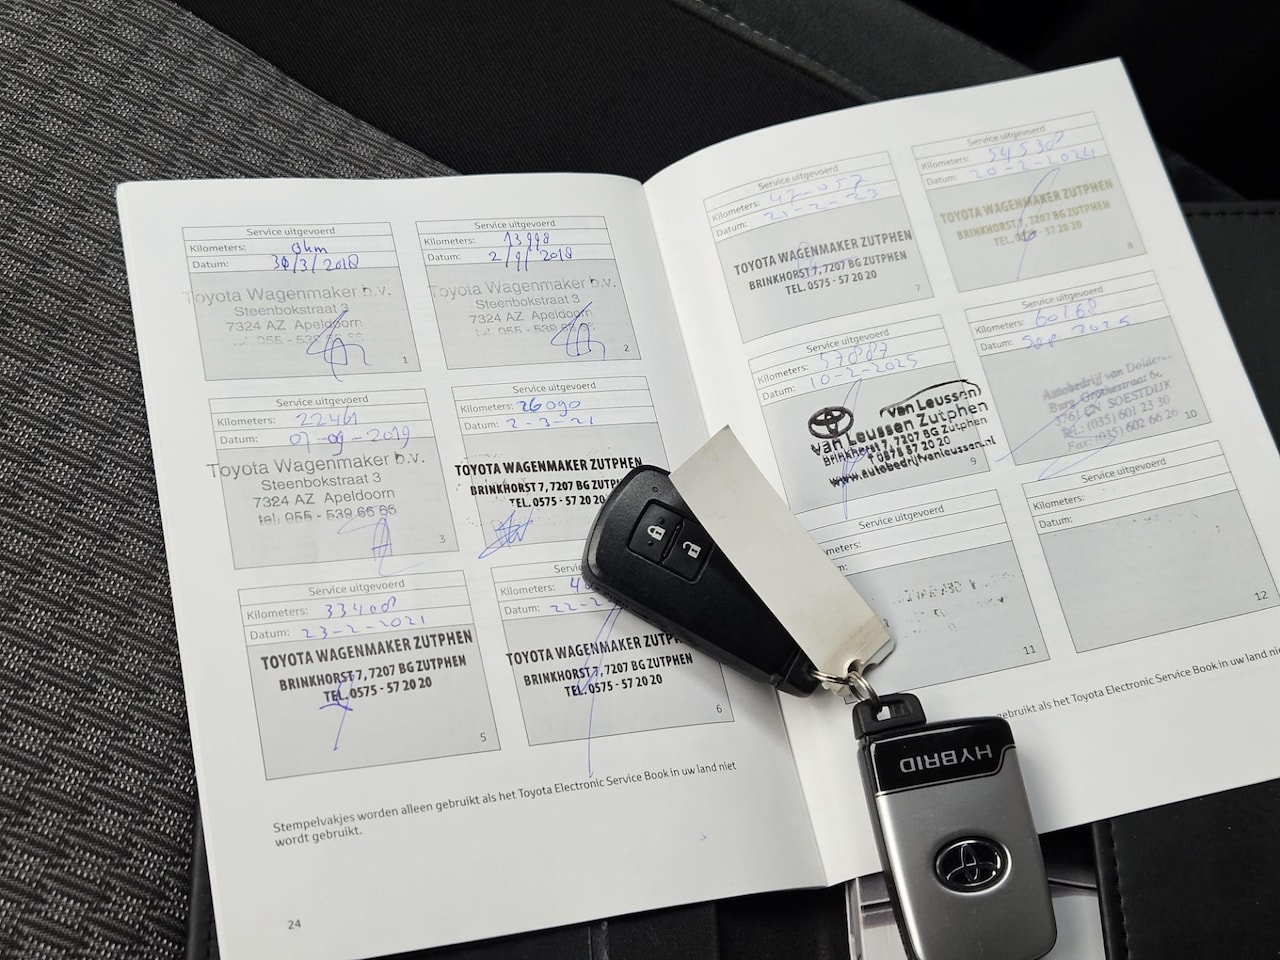 Service uitgevoerd
Kilometers: 0km
Datum: 30/3/2018
Toyota Wagenmaker b.v.
Steenbokstraat 3
7324 AZ Apeldoorn
tel. 055 - 539 66 66
1
Service uitgevoerd
Kilometers: 13998
Datum: 2/9/2018
Toyota Wagenmaker b.v.
Steenbokstraat 3
7324 AZ Apeldoorn
tel. 055 - 539 66 66
2
Service uitgevoerd
Kilometers: 22461
Datum: 09-2019
Toyota Wagenmaker b.v.
Steenbokstraat 3
7324 AZ Apeldoorn
tel. 055 - 539 66 66
3
Service uitgevoerd
Kilometers: 26090
Datum: 2-3-21
TOYOTA WAGENMAKER ZUTPHEN
BRINKHORST 7, 7207 BG ZUTPHEN
TEL. 0575 - 57 20 20
Service uitgevoerd
Kilometers: 33408
Datum: 23-2-2021
TOYOTA WAGENMAKER ZUTPHEN
BRINKHORST 7, 7207 BG ZUTPHEN
TEL. 0575 - 57 20 20
5
Kilometers:
Datum: 22-2
TOYOTA WAGENMAKER
BRINKHORST 7, 7207 BG ZUTPHEN
TEL. 0575 - 57 20 20
6
Stempelvakjes worden alleen gebruikt als het Toyota Electronic Service Book in uw land niet
wordt gebruikt.
24
Service uitgevoerd
Kilometers: 47-057
Datum: 21-2-23
TOYOTA WAGENMAKER ZUTPHEN
BRINKHORST 7, 7207 BG ZUTPHEN
TEL. 0575 - 57 20 20
7
Service uitgevoerd
Kilometers: 54538
Datum: 20-2-2024
TOYOTA WAGENMAKER ZUTPHEN
BRINKHORST 7, 7207 BG ZUTPHEN
TEL. 0575 - 57 20 20
8
Service uitgevoerd
Kilometers: 57887
Datum: 10-2-2025
van Leussen
van Leussen Zutphen
Brinkhorst 7, 7207 BG Zutphen
57 20 20
www.autobedrijfvanleussen.nl
9
Service uitgevoerd
Kilometers: 60168
Datum: Sep 2025
Autobedrijf van
Burg. Grothestraat
3761 CN SOESTDIJK
Tel: (035) 601 23 30
Fax: (035) 602 66 26
10
Service uitgevoerd
11
Service uitgevoerd
Kilometers:
Datum:
12
gebruikt als het Toyota Electronic Service Book in uw land
HYBRID